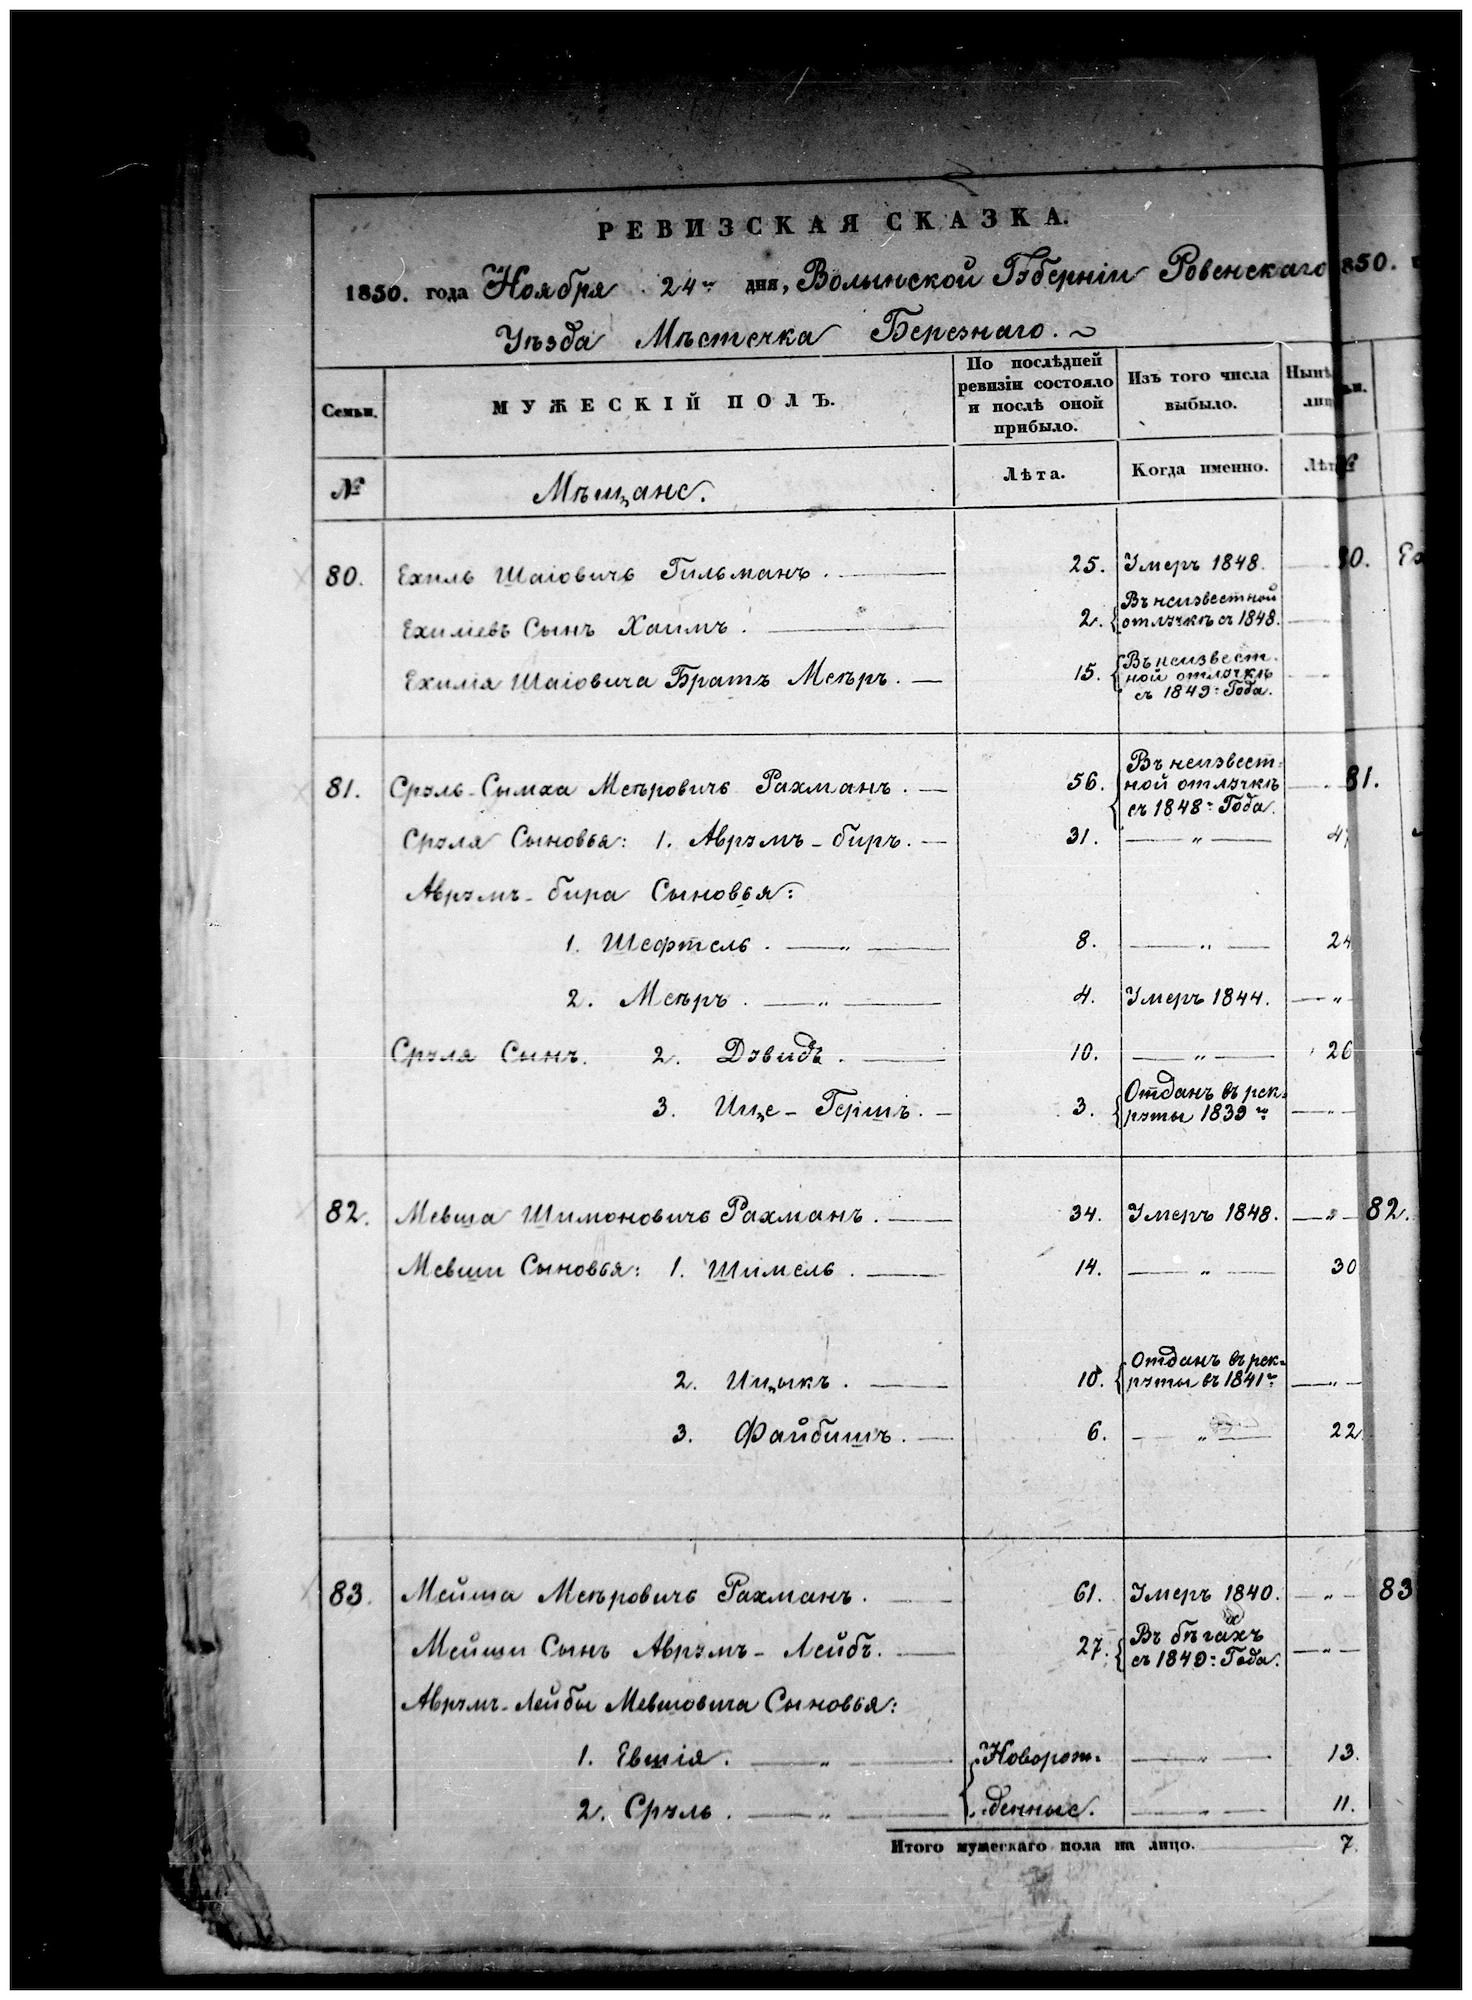 РЕВИЗСКАЯ СКАЗКА.
1850. года Ноября 24го дня, Волынской Губерніи Ровенскаго
Уѣзда Мѣстечка Березнаго.
Семьи. МУЖЕСКІЙ ПОЛЪ. По послѣдней ревизіи состояло и послѣ оной прибыло. Изъ того числа выбыло. Нынѣ
№ Мѣщане. Лѣта. Когда именно. Лѣт
80. Ехиль Шаіовичь Гильманъ. 25. Умеръ 1848.
Ехиліевъ Сынъ Хаимъ. 2. Въ неизвестной отлучкѣ съ 1848.
Ехилія Шаіовича Братъ Меѣръ. 15. Въ неизвестной отлучкѣ съ 1849: Года.
81. Сруль-Сымха Меѣровичь Рахманъ. 56. Въ неизвестной отлучкѣ съ 1848: Года.
Сруля Сыновья: 1. Аврумъ-биръ. 31. — „ — 47
Аврумъ-бира Сыновья:
1. Шефтель. — „ — 8. — „ — 24
2. Меѣръ. — „ — 4. Умеръ 1844. — „ —
Сруля Сынъ. 2. Дувидъ. 10. — „ — 26
3. Ице-Гершъ. 3. Отданъ въ рекруты 1839го — „ —
82. Мевша Шимоновичь Рахманъ. 34. Умеръ 1848. — „ —
Мевши Сыновья: 1. Шимель. 14. — „ — 30
2. Ицыкъ. 10. Отданъ въ рекруты въ 1841го — „ —
3. Файбишъ. 6. — „ — 22.
83. Мейша Меѣровичь Рахманъ. 61. Умеръ 1840. — „ —
Мейши Сынъ Аврумъ-Лейбъ. 27. Въ бѣгахъ съ 1849: Года. — „ —
Аврумъ-Лейбы Мевшовича Сыновья:
1. Евшія. — „ — Новорож- — „ — 13.
2. Сруль. — „ — денные. — „ — 11.
Итого мужескаго пола на лицо. 7.
850.
№
80. Ех
81.
82.
83